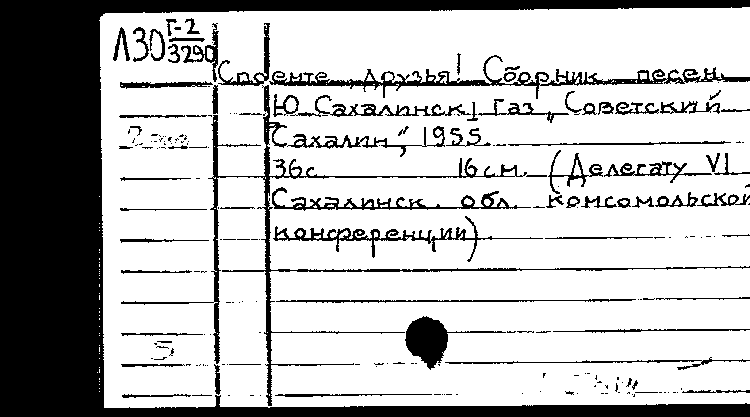 Л30 Г-2/3290
Споемте, друзья! Сборник песен.
Ю. Сахалинск, Газ. „Советский
Сахалин“, 1955.
36с. 16 см. (Делегату VI
Сахалинск. обл. комсомольской
конференции).
5